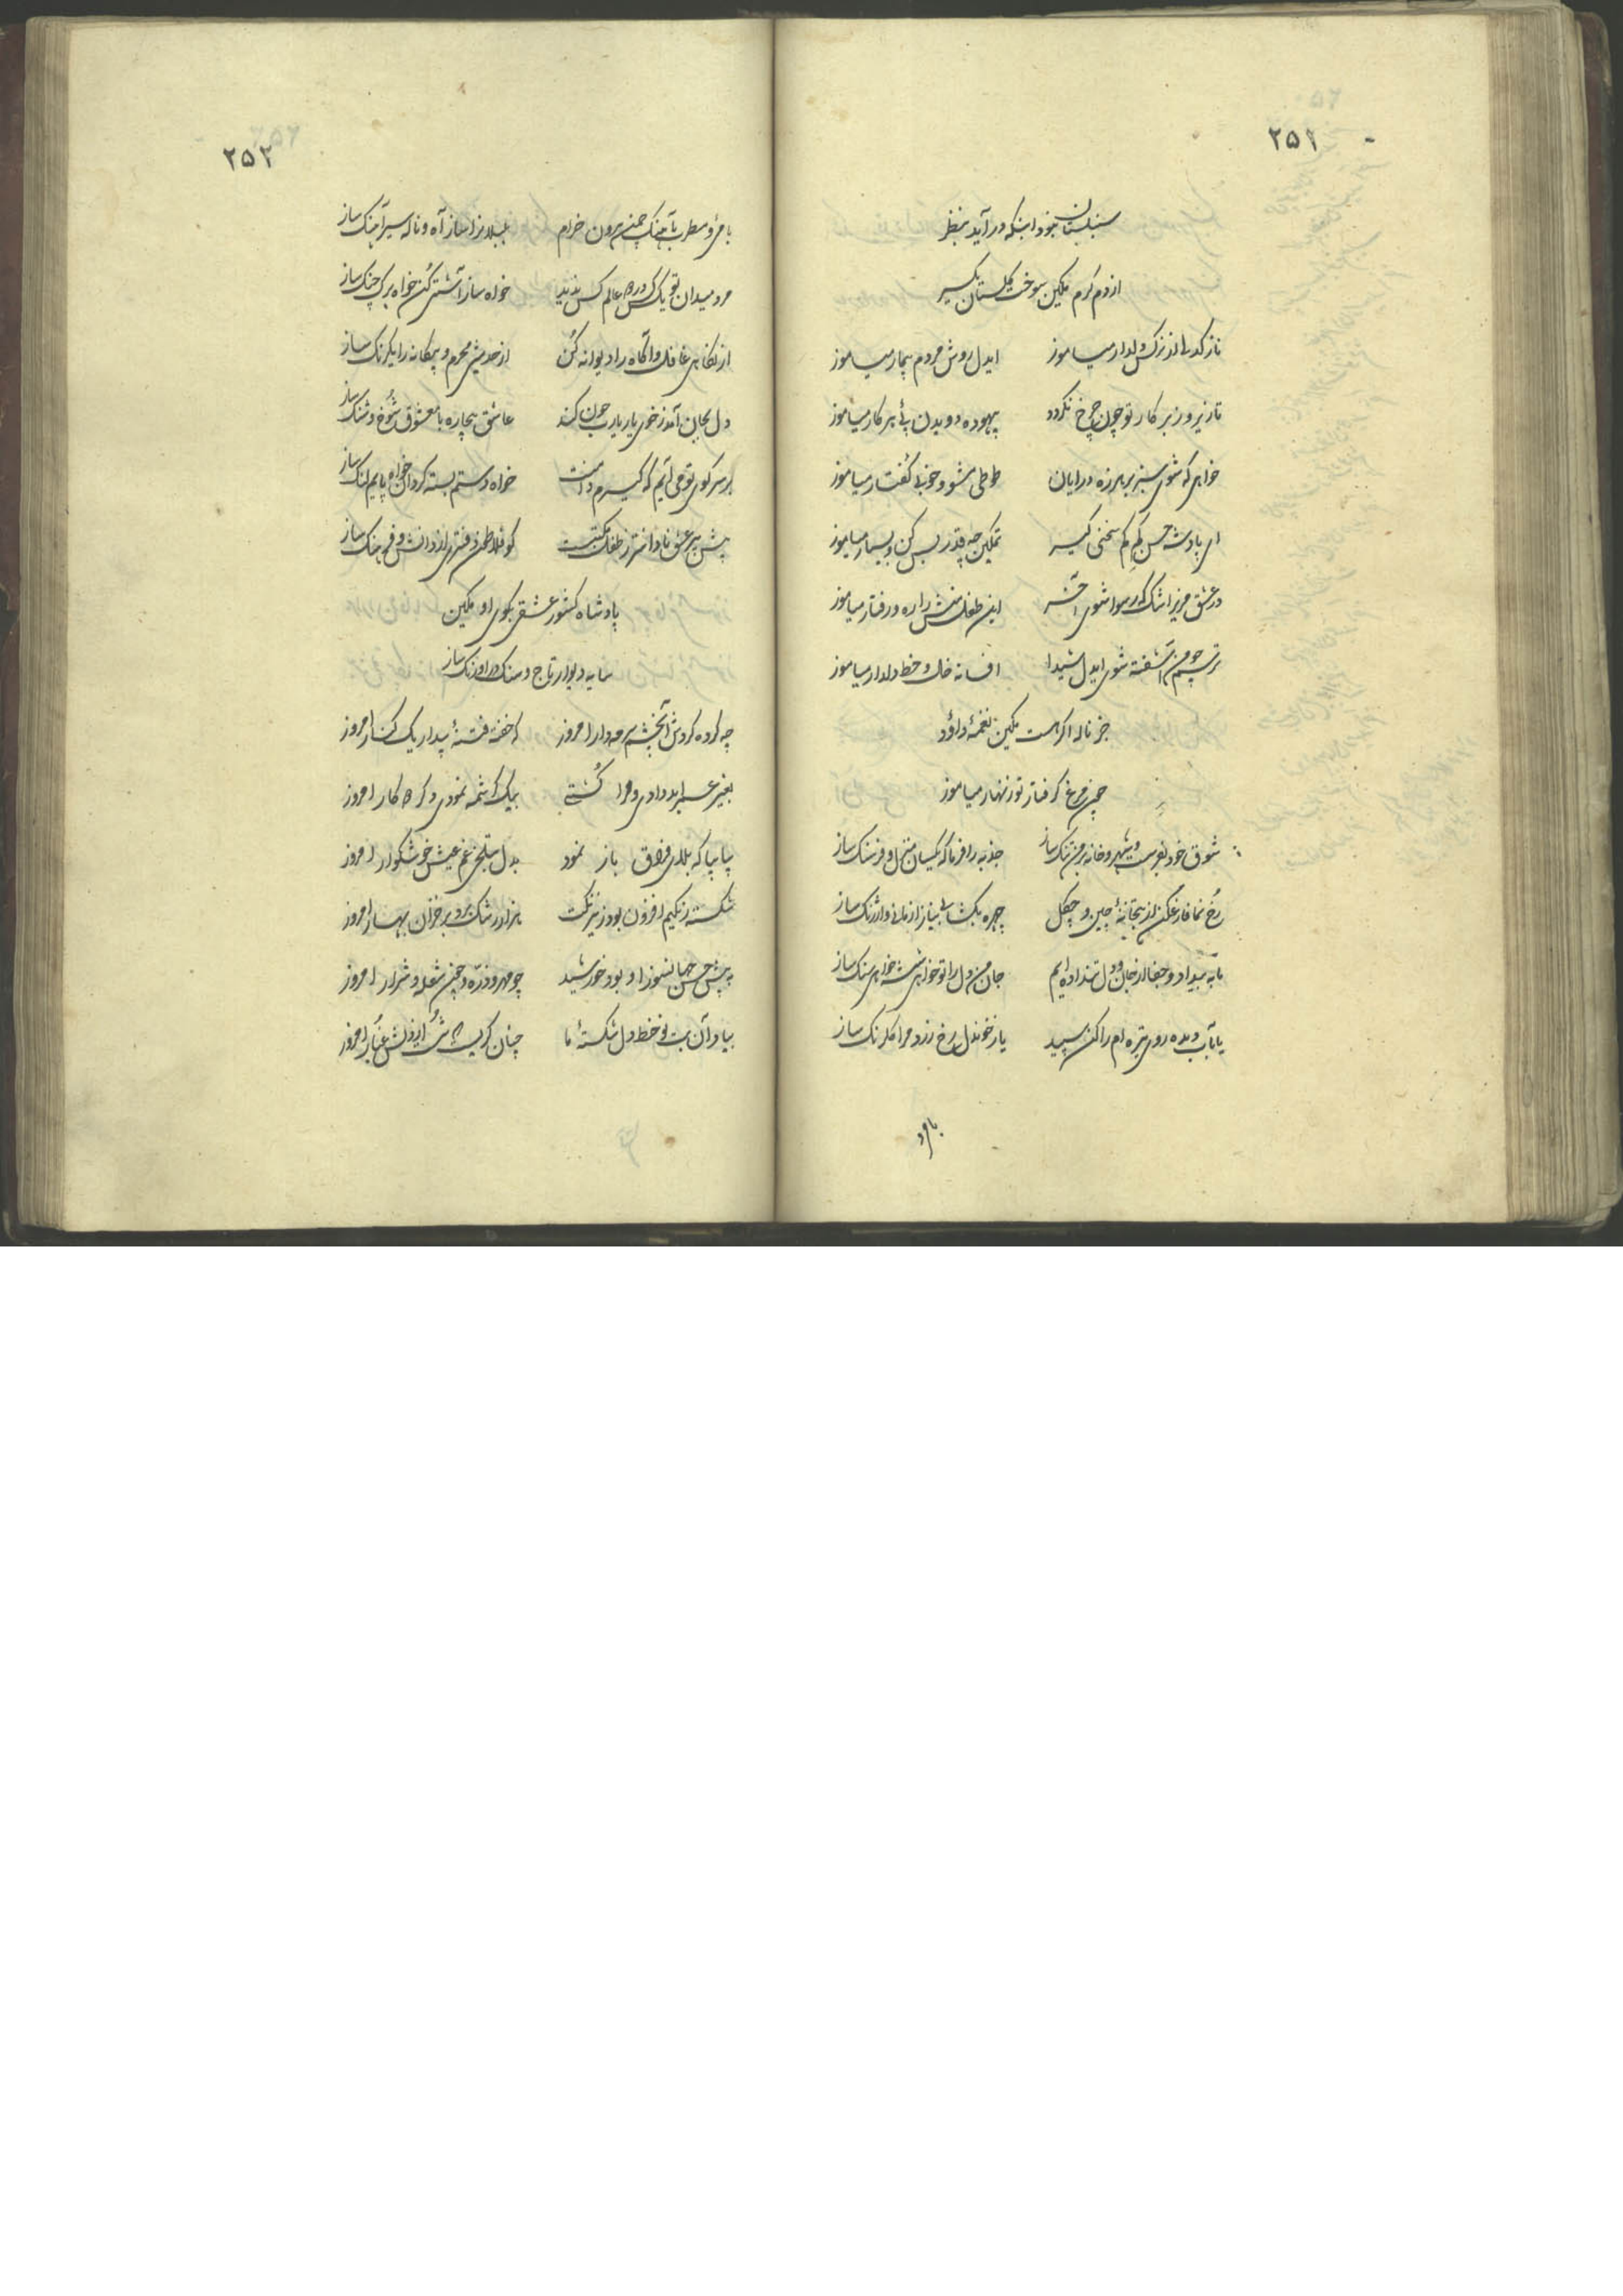 ۲۵۱
سنبلستان بنود اینکه در آید بنظر
از دم گرم مکین سوخت گلستان یکسر
ناز کدائی از نرگس دلدار میاموز ایدل روش مردم بیمار میاموز
تا زیر و زبر کار تو چون چرخ نگردد بیهوده دویدن پئ هر کار میاموز
خواهی که شوی سبز بر هرزه درایان طوطی مشو و خوبی گفتار میاموز
ای پادشه حسن کم کم سخنی گیر تمکین چه قدر بس کن و بسیار میاموز
در عشق مریز اشک که رسوا شوی آخر این طفل منش را ره و رفتار میاموز
ترسم چو من آشفته شوی ایدل شیدا افسانه خال و خط دلدار میاموز
جز ناله اگر هست مکین نغمهٔ داؤد
چون مرغ گرفتار تو زنهار میاموز
شوق خود بفرست و شهر و خانه بر من تنک ساز جذبه را فرما که یکسان منزل و فرسنک ساز
رخ نما فارغ کن از بتخانهٔ چین و چگل چهره بکشا بی نیاز از مانی و ارژنک ساز
ما به بیداد و جفا از جان و دل تن داده ایم جان من دل را تو خواهی شیشه خواهی سنک ساز
یا بآب دیده روی تیره ام را کن سپید یا ز خوندل رخ زرد مرا گلرنک ساز
با می و
۲۵۲
با می و مطرب بآهنک چمن بیرون خرام بلبلانرا ساز آه و ناله سیر آهنک ساز
مرد میدان تو یک کس در همه عالم کس ندید خواه ساز آشتی کن خواه برک جنک ساز
از نگاهی غافل و آگاه را دیوانه کن از حدیثی محرم و بیگانه را یکرنک ساز
دل بجان آمد ز خوی یار یارب چون کند عاشق بیچاره با معشوق شوخ و شنک ساز
بر سر کوی تو می آیم که گیرم دامنت خواه دستم بسته گردان خواه پایم لنک ساز
پیش پیر عشق نادانتر ز طفل مکتبست کو فلاطون دفتری از دانش و فرهنک ساز
پادشاه کشور عشقی بکوی او مکین
سایه دیوار تاج و سنک در اورنک ساز
چه کرده گردش آنچشم سرمه دار امروز که خفته فتنهٔ بیدار یک کنار امروز
بغیر عشوه ندادی و مرا کشتی بیک کرشمه نمودی دگر چه کار امروز
بیا بیا که بلای فراق باز نمود بدل بتلخی غم عیش خوشگوار امروز
شکسته رنگیم افزون بود ز نیرنگت هزار رشک برد بر خزان بهار امروز
به پیش حسن جهانسوز او بود خورشید چو مهر و ذره و چون شعله و شرار امروز
بیاد آن بت نو خط دل شکستهٔ ما چنان گریست که شد ابر از دلش غبار امروز